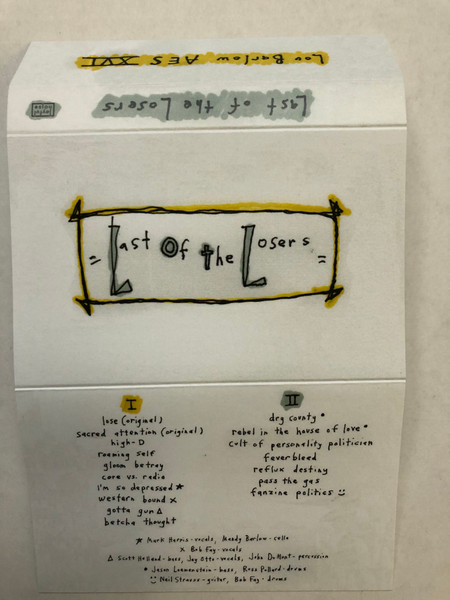 Lou Barlow AES XVI
Last of the Losers
= Last Of the Losers =
I
lose (original)
sacred attention (original)
high-D
roaming self
gloom betray
core vs. radio
I'm so depressed ★
western bound x
gotta gun △
betcha thought
II
dry county •
rebel in the house of love •
cult of personality politician
feverbleed
reflux destiny
pass the gas
fanzine politics
★ Mark Harris - vocals, Mandy Barlow - cello
x Bob Fay - vocals
△ Scott Helland - bass, Jay Otto - vocals, John DuMont - percussion
• Jason Loewenstein - bass, Russ Pollard - drums
Neil Strauss - guitar, Bob Fay - drums